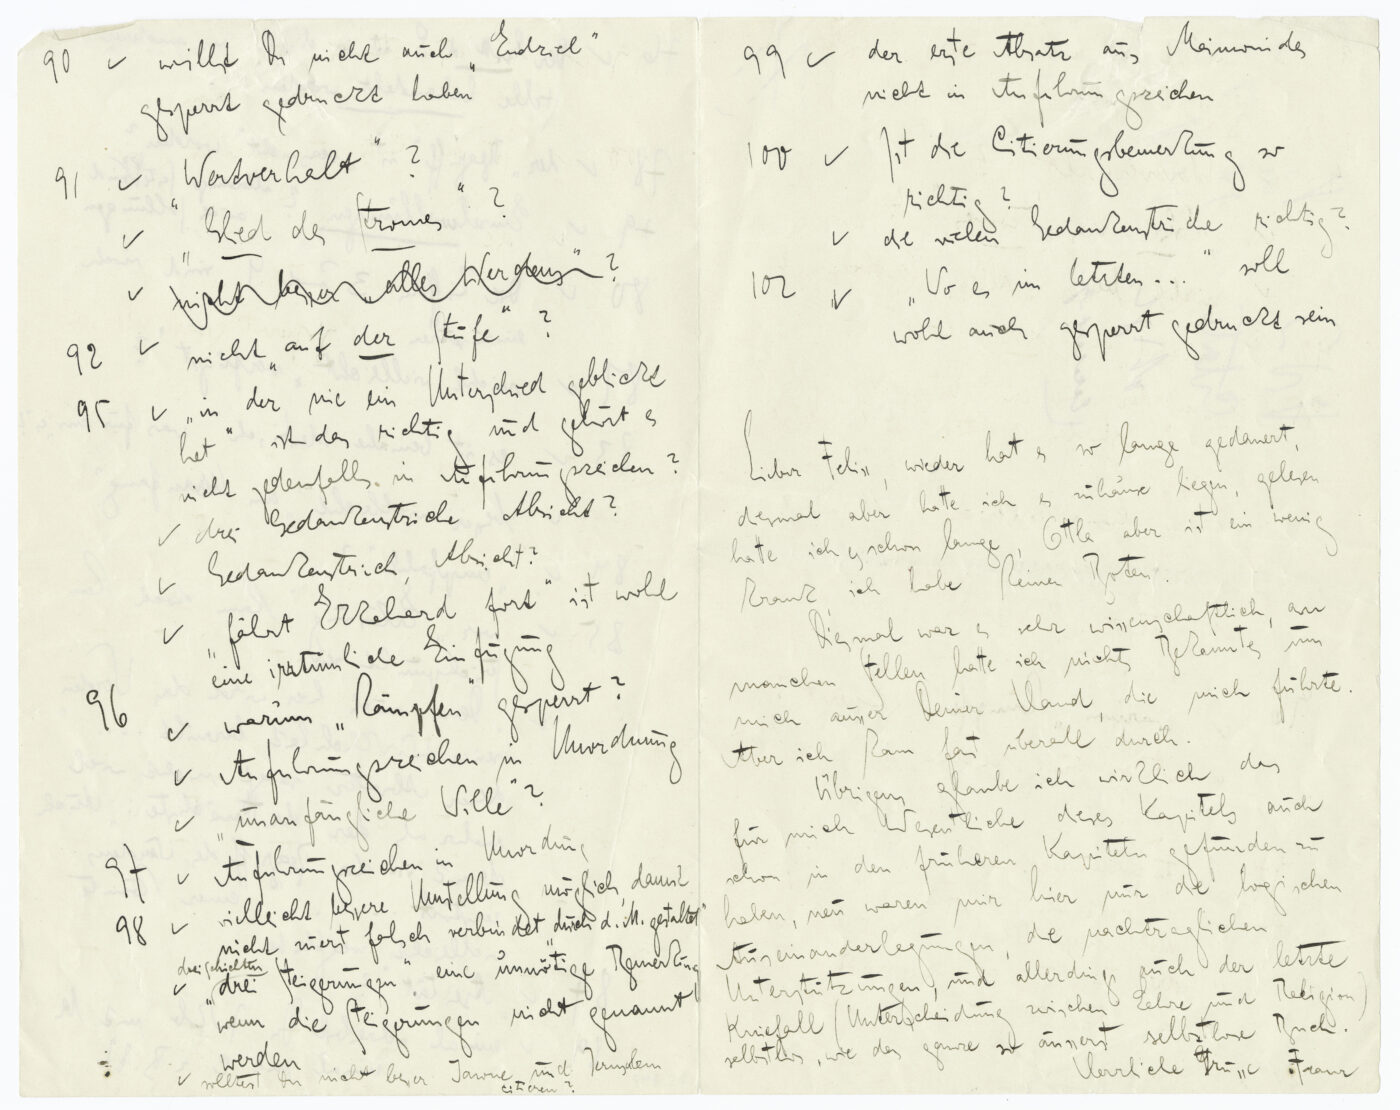 90 ✓ willst Du nicht auch "Endziel"
gesperrt gedruckt haben
91 ✓ "Wertverhalt" ?
✓ "Glied des Stromes" ?
✓ nicht besser "alles Werdens" ?
92 ✓ nicht "auf der Stufe" ?
95 ✓ "in der nie ein Unterschied geblickt
hat" ist das richtig und gehört es
nicht jedenfalls in Anführungszeichen?
✓ drei Gedankenstriche Absicht?
✓ Gedankenstrich, Absicht?
✓ "fährt Ekkehard fort" ist wohl
eine irrtümliche Einfügung
96 ✓ warum "Kämpfen" gesperrt?
✓ Anführungszeichen in Unordnung
✓ "unanfängliche Wille"?
97 ✓ Anführungszeichen in Unordnung
98 ✓ vielleicht bessere Umstellung möglich, damit
nicht zuerst falsch verbindet "durch d. M. gestaltet"
dreigeschichtet
✓ "drei Steigerungen" eine unnötige Bemerkung
wenn die Steigerungen nicht genannt
werden
✓ solltest Du nicht besser Jawne und Jerusalem
citieren?
99 ✓ der erste Absatz aus Maimonides
nicht in Anführungszeichen
100 ✓ Ist die Citierungsbemerkung so
richtig?
✓ die vielen Gedankenstriche richtig?
102 ✓ "Wo es im letzten..." soll
wohl auch gesperrt gedruckt sein
Lieber Felix, wieder hat es so lange gedauert,
diesmal aber hatte ich es zuhause liegen, gelesen
hatte ich es schon lange, Ottla aber ist ein wenig
krank, ich habe keinen Boten.
Diesmal war es sehr wissenschaftlich, an
manchen Stellen hatte ich nichts Bekanntes um
mich ausser Deiner Hand, die mich führte.
Aber ich kam fast überall durch.
Übrigens glaube ich wirklich das
für mich Wesentliche dieses Kapitels auch
schon in den früheren Kapiteln gefunden zu
haben, neu waren mir hier nur die logischen
Auseinanderlegungen, die nachträglichen
Unterstützungen und allerdings auch der letzte
Kniefall (Unterscheidung zwischen Lehre und Religion)
selbstlos, wie das ganze so äusserst selbstlose Buch.
Herzliche Grüsse Franz